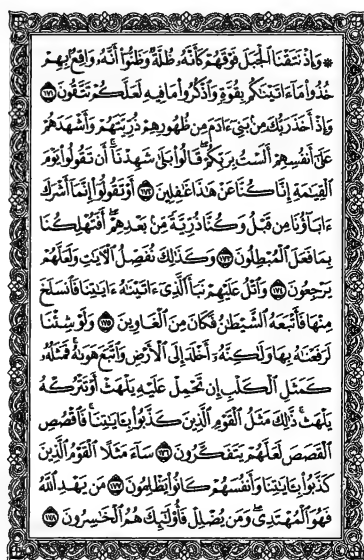 ۞ وَإِذْ نَتَقْنَا ٱلْجَبَلَ فَوْقَهُمْ كَأَنَّهُۥ ظُلَّةٌ وَظَنُّوٓا۟ أَنَّهُۥ وَاقِعٌۢ بِهِمْ
خُذُوا۟ مَآ ءَاتَيْنَٰكُم بِقُوَّةٍ وَٱذْكُرُوا۟ مَا فِيهِ لَعَلَّكُمْ تَتَّقُونَ ١٧١
وَإِذْ أَخَذَ رَبُّكَ مِنۢ بَنِىٓ ءَادَمَ مِن ظُهُورِهِمْ ذُرِّيَّتَهُمْ وَأَشْهَدَهُمْ
عَلَىٰٓ أَنفُسِهِمْ أَلَسْتُ بِرَبِّكُمْ ۖ قَالُوا۟ بَلَىٰ شَهِدْنَآ ۛ أَن تَقُولُوا۟ يَوْمَ
ٱلْقِيَٰمَةِ إِنَّا كُنَّا عَنْ هَٰذَا غَٰفِلِينَ ١٧٢ أَوْ تَقُولُوٓا۟ إِنَّمَآ أَشْرَكَ
ءَابَآؤُنَا مِن قَبْلُ وَكُنَّا ذُرِّيَّةً مِّنۢ بَعْدِهِمْ ۖ أَفَتُهْلِكُنَا
بِمَا فَعَلَ ٱلْمُبْطِلُونَ ١٧٣ وَكَذَٰلِكَ نُفَصِّلُ ٱلْءَايَٰتِ وَلَعَلَّهُمْ
يَرْجِعُونَ ١٧٤ وَٱتْلُ عَلَيْهِمْ نَبَأَ ٱلَّذِىٓ ءَاتَيْنَٰهُ ءَايَٰتِنَا فَٱنسَلَخَ
مِنْهَا فَأَتْبَعَهُ ٱلشَّيْطَٰنُ فَكَانَ مِنَ ٱلْغَاوِينَ ١٧٥ وَلَوْ شِئْنَا
لَرَفَعْنَٰهُ بِهَا وَلَٰكِنَّهُۥٓ أَخْلَدَ إِلَى ٱلْأَرْضِ وَٱتَّبَعَ هَوَىٰهُ ۚ فَمَثَلُهُۥ
كَمَثَلِ ٱلْكَلْبِ إِن تَحْمِلْ عَلَيْهِ يَلْهَثْ أَوْ تَتْرُكْهُ
يَلْهَث ۚ ذَّٰلِكَ مَثَلُ ٱلْقَوْمِ ٱلَّذِينَ كَذَّبُوا۟ بِـَٔايَٰتِنَا ۚ فَٱقْصُصِ
ٱلْقَصَصَ لَعَلَّهُمْ يَتَفَكَّرُونَ ١٧٦ سَآءَ مَثَلًا ٱلْقَوْمُ ٱلَّذِينَ
كَذَّبُوا۟ بِـَٔايَٰتِنَا وَأَنفُسَهُمْ كَانُوا۟ يَظْلِمُونَ ١٧٧ مَن يَهْدِ ٱللَّهُ
فَهُوَ ٱلْمُهْتَدِى ۖ وَمَن يُضْلِلْ فَأُو۟لَٰٓئِكَ هُمُ ٱلْخَٰسِرُونَ ١٧٨